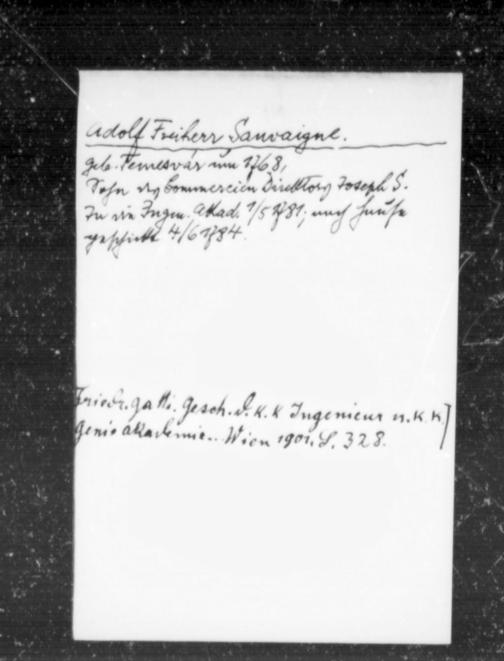 Adolf Freiherr Sauvaigne.
geb. Temesvár um 1768,
Sohn des Commercien Direktors Joseph S.
In die Ingen. Akad. 1/5 1781; nach Hause
geschickt 4/6 1784.
Friedr. Gatti. Gesch. d. K. K Ingenieur u. K. K.
Genie Akademie.. Wien 1901. S. 328.